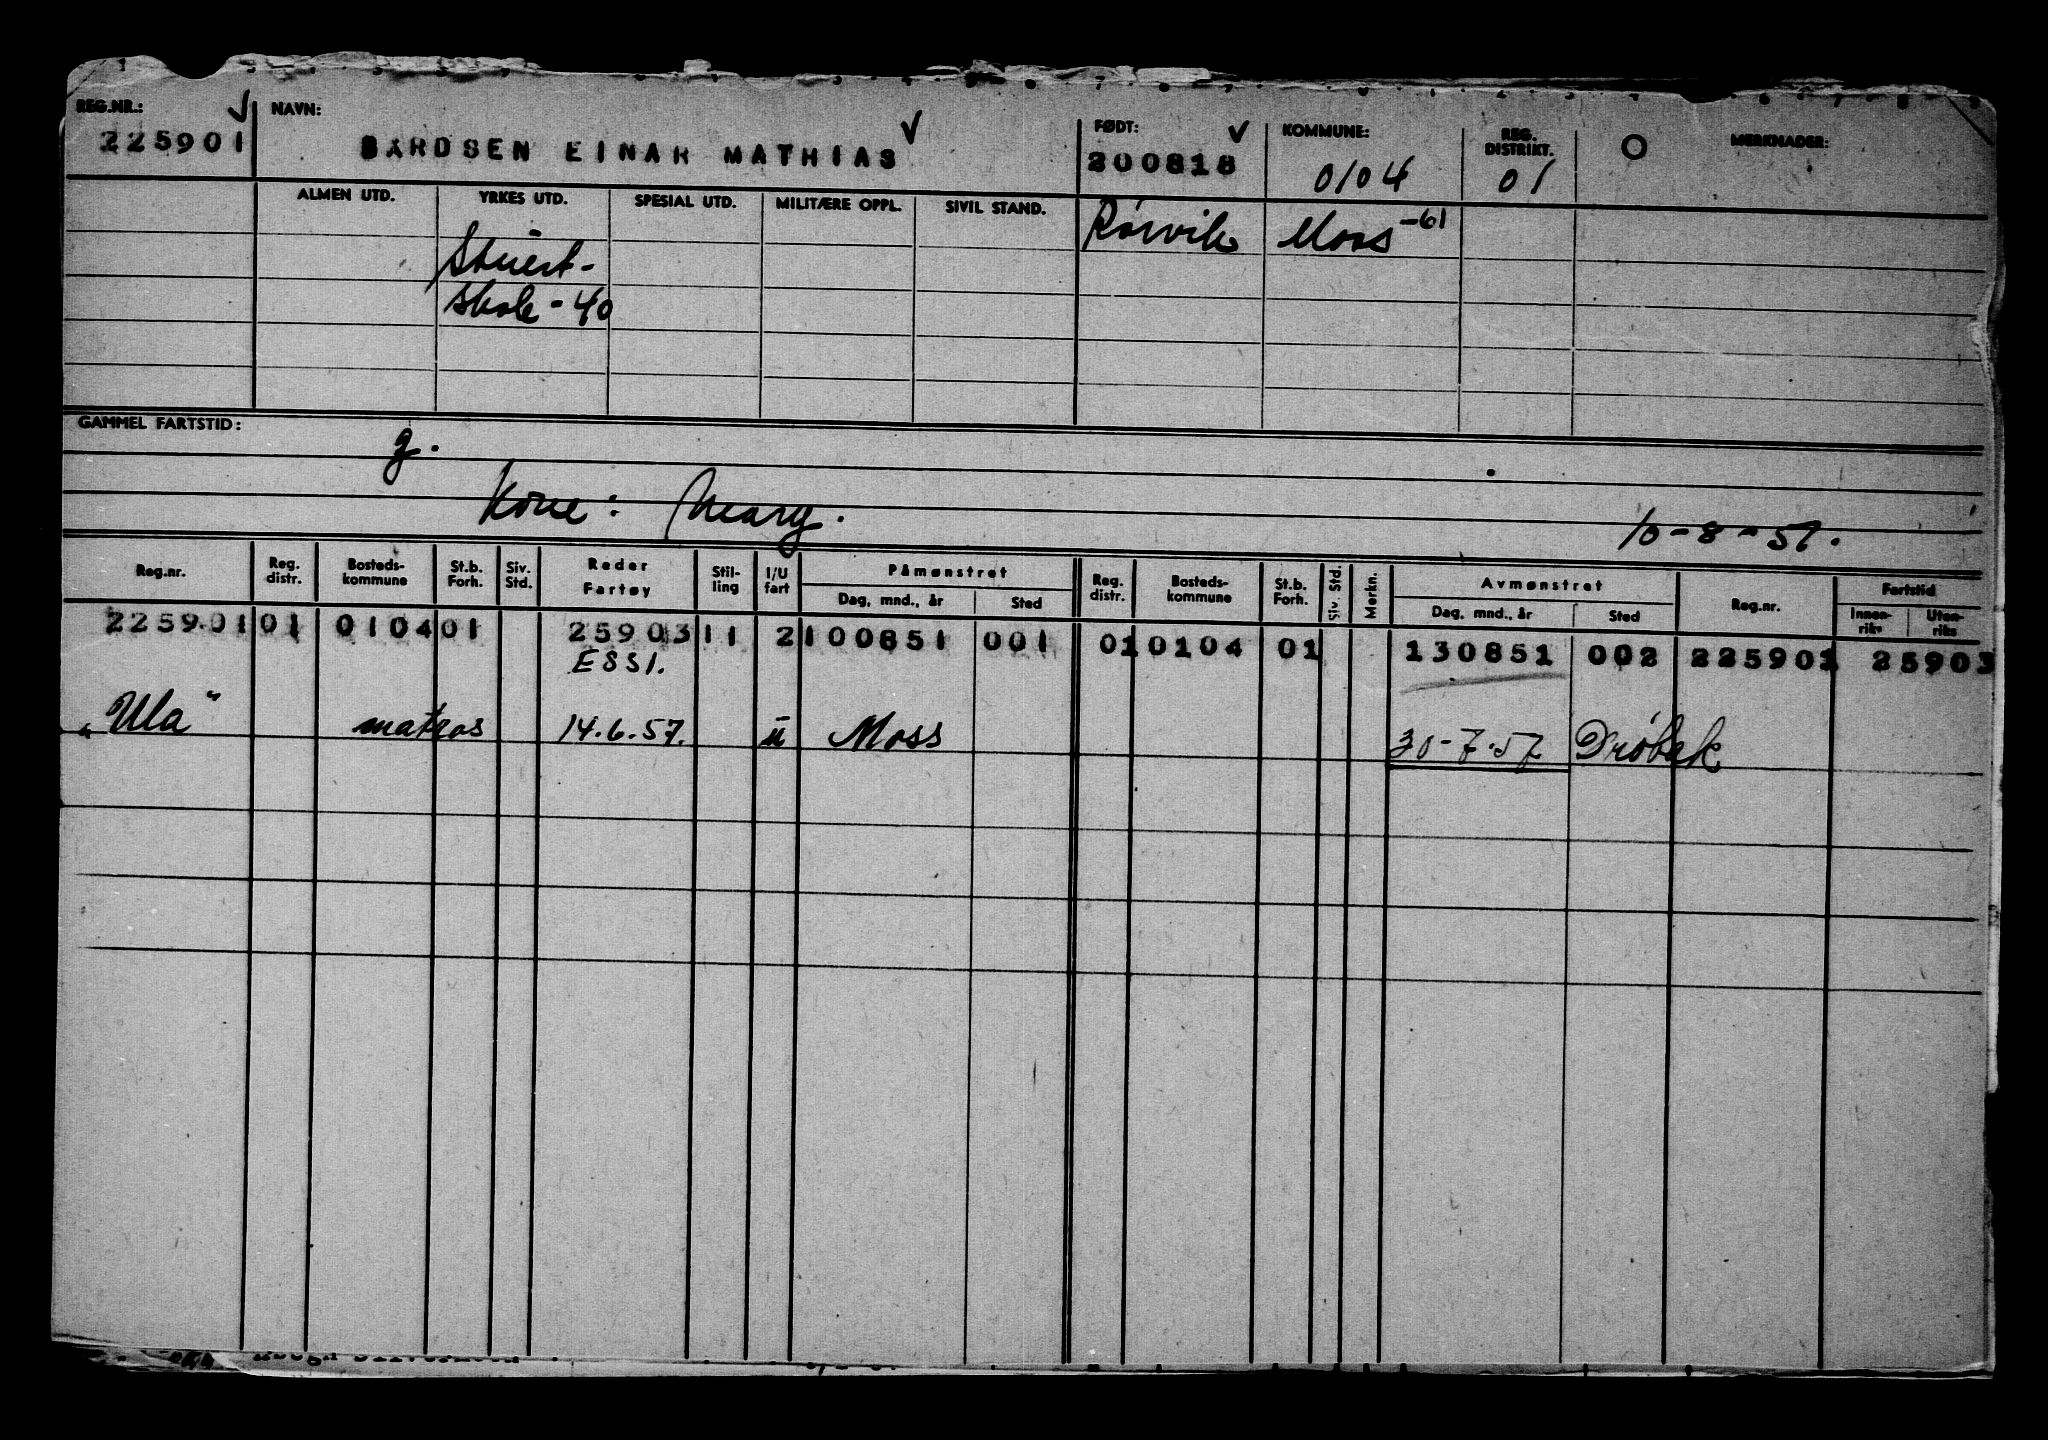 REG.NR.: NAVN: FØDT: KOMMUNE: REG. DISTRIKT. MERKNADER:
225901 BÅRDSEN EINAR MATHIAS 200818 0104 01
ALMEN UTD. YRKES UTD. SPESIAL UTD. MILITÆRE OPPL. SIVIL STAND. Rørvik Moss -61
Stuert-
skole - 40
GAMMEL FARTSTID:
g.
Kone: Mary. 10-8-51.
Reg.nr. Reg. distr. Bosteds- kommune St.b. Forh. Siv. Std. Reder Fartøy Stil- ling I/U fart Påmønstret Reg. distr. Bosteds- kommune St.b. Forh. Siv. Std. Merkn. Avmønstret Reg.nr. Fartstid
Dag, mnd., år Sted Dag, mnd., år Sted Innen- riks Uten- riks
225901 01 0104 01 25903 11 2 100851 001 01 0104 01 130851 002 225901 25903
ESSI.
"Ula" matros 14.6.57. u Moss 30-7-57 Drøbak